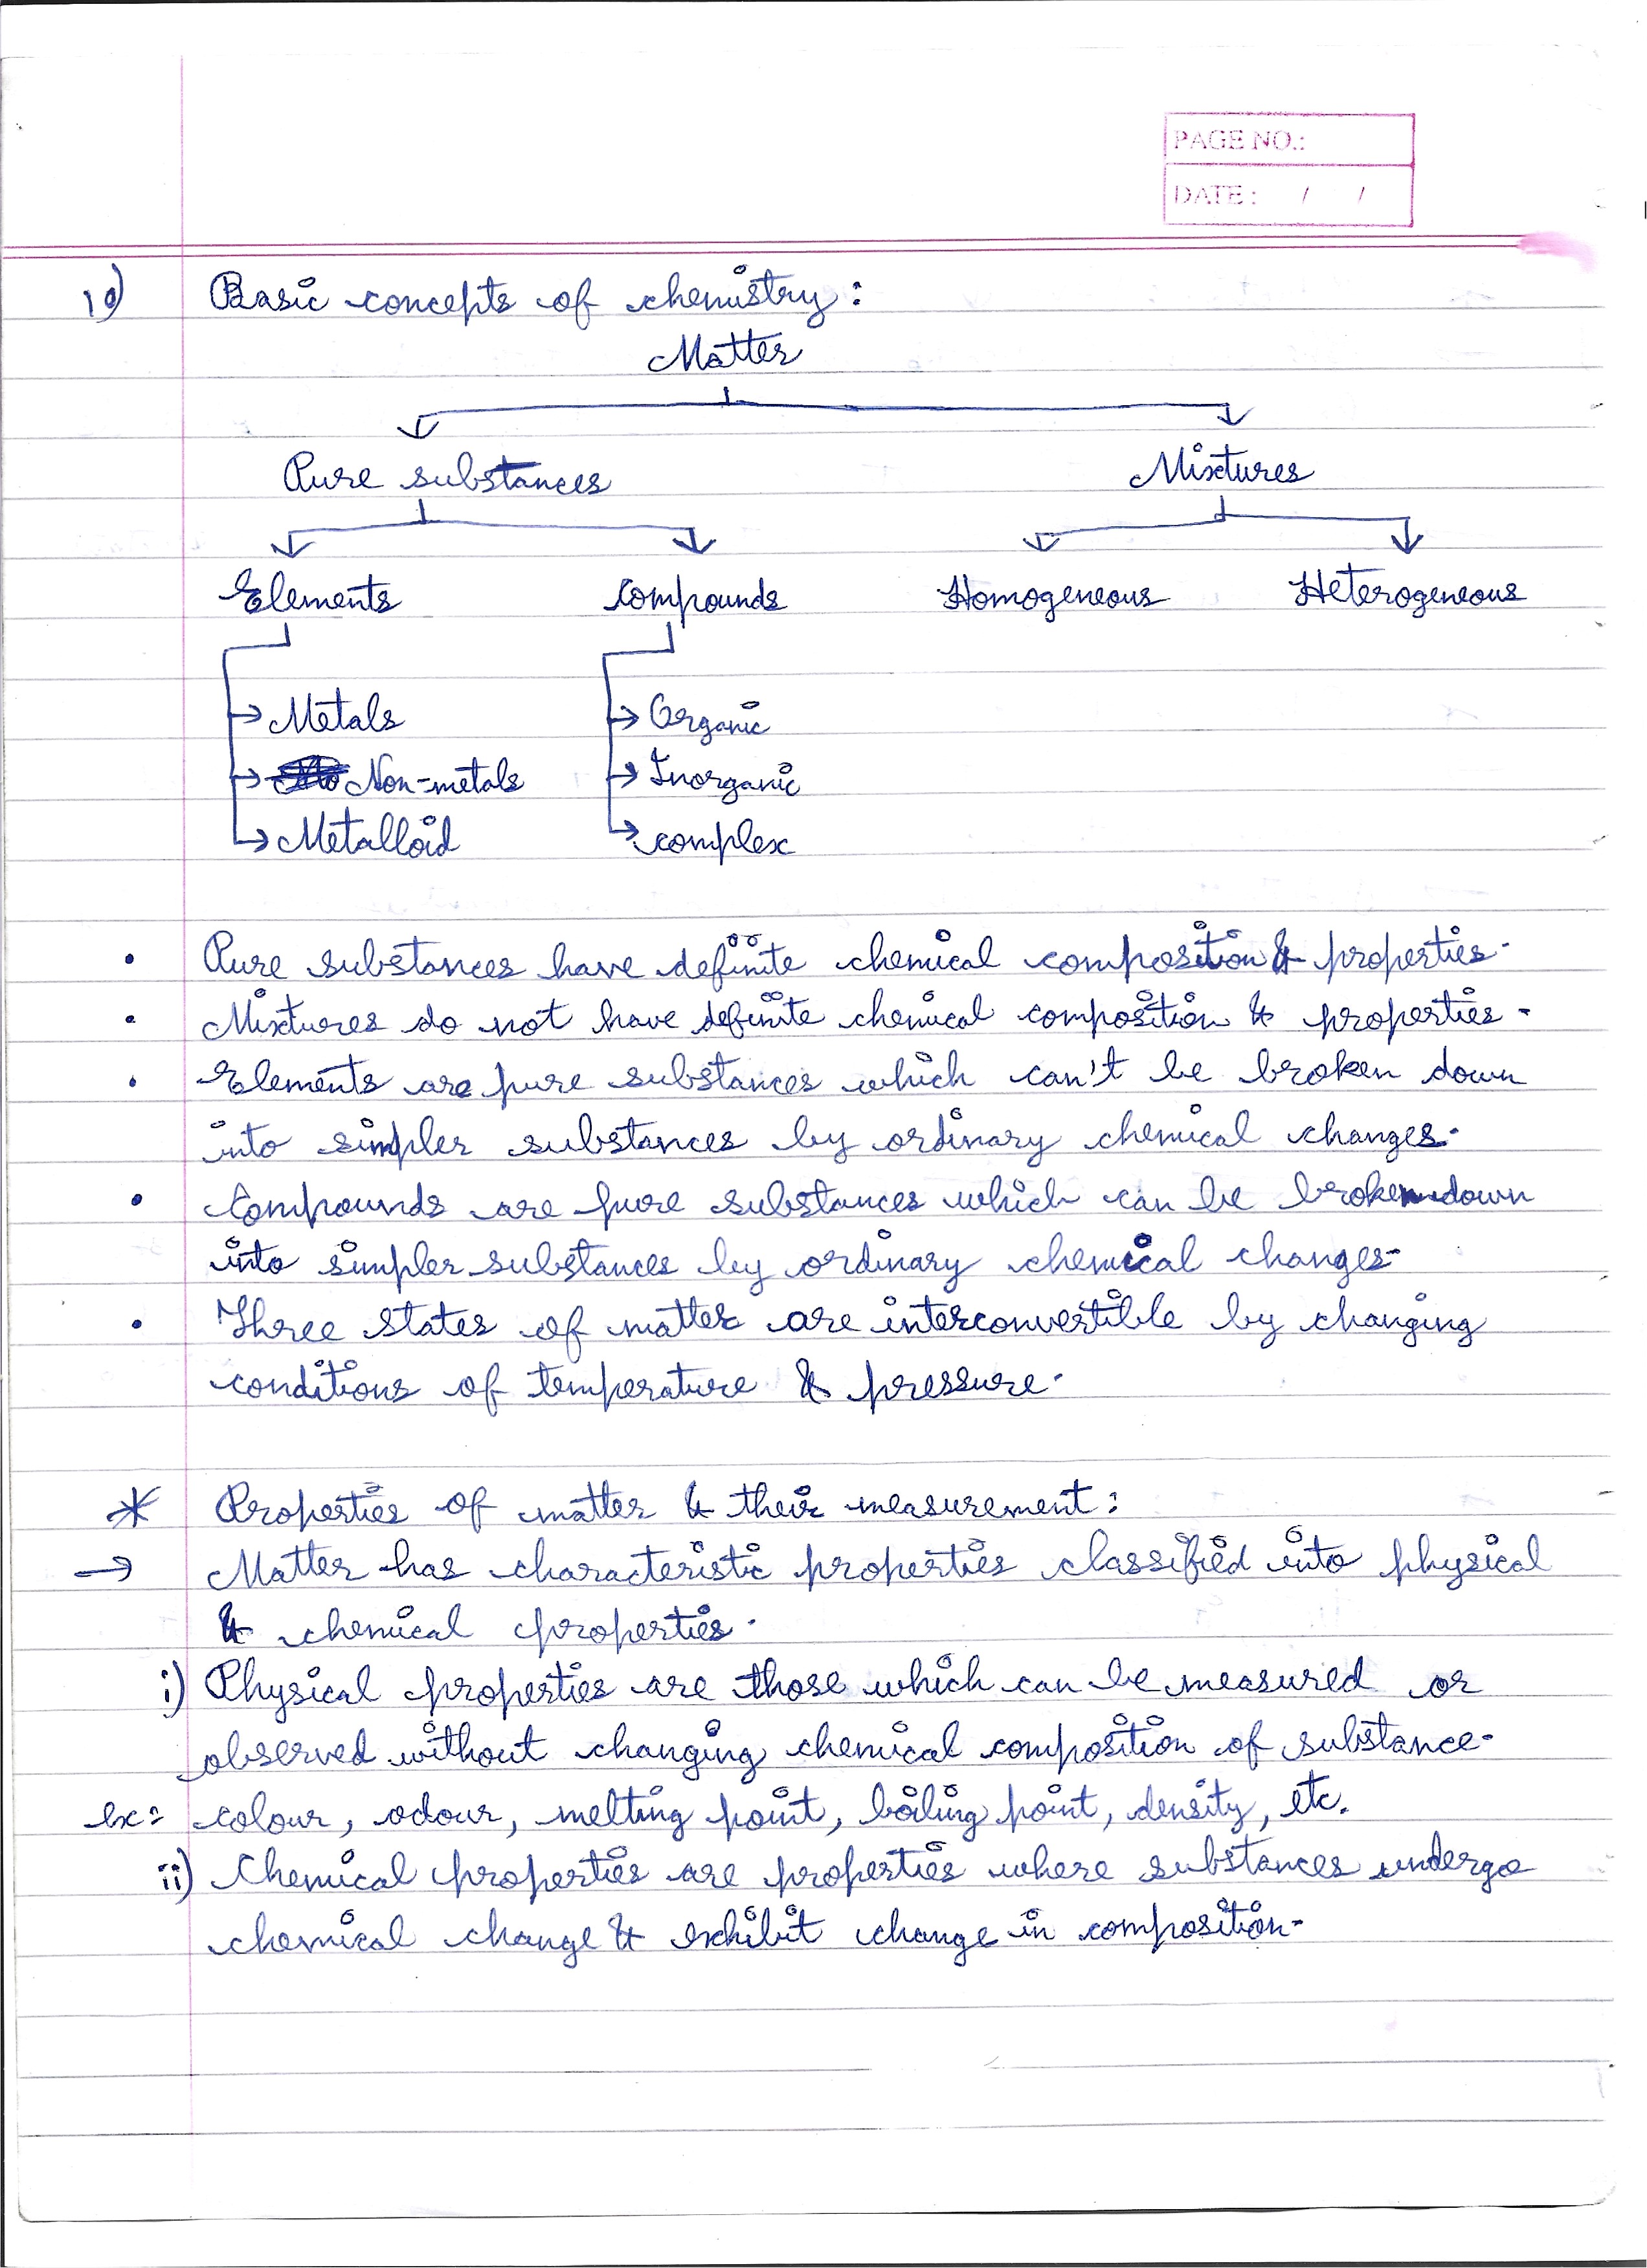 PAGE NO.:
DATE : / /
1°) Basic concepts of chemistry :
Matter
Pure substances Mixtures
Elements Compounds Homogeneous Heterogeneous
→ Metals → Organic
→ Non-metals → Inorganic
→ Metalloid → complex
• Pure substances have definite chemical composition & properties.
• Mixtures do not have definite chemical composition & properties.
• Elements are pure substances which can't be broken down
into simpler substances by ordinary chemical changes.
• Compounds are pure substances which can be broken down
into simpler substances by ordinary chemical changes.
• Three states of matter are interconvertible by changing
conditions of temperature & pressure.
* Properties of matter & their measurement :
→ Matter has characteristic properties classified into physical
& chemical properties.
i) Physical properties are those which can be measured or
observed without changing chemical composition of substance.
ex: colour, odour, melting point, boiling point, density, etc.
ii) Chemical properties are properties where substances undergo
chemical change & exhibit change in composition.